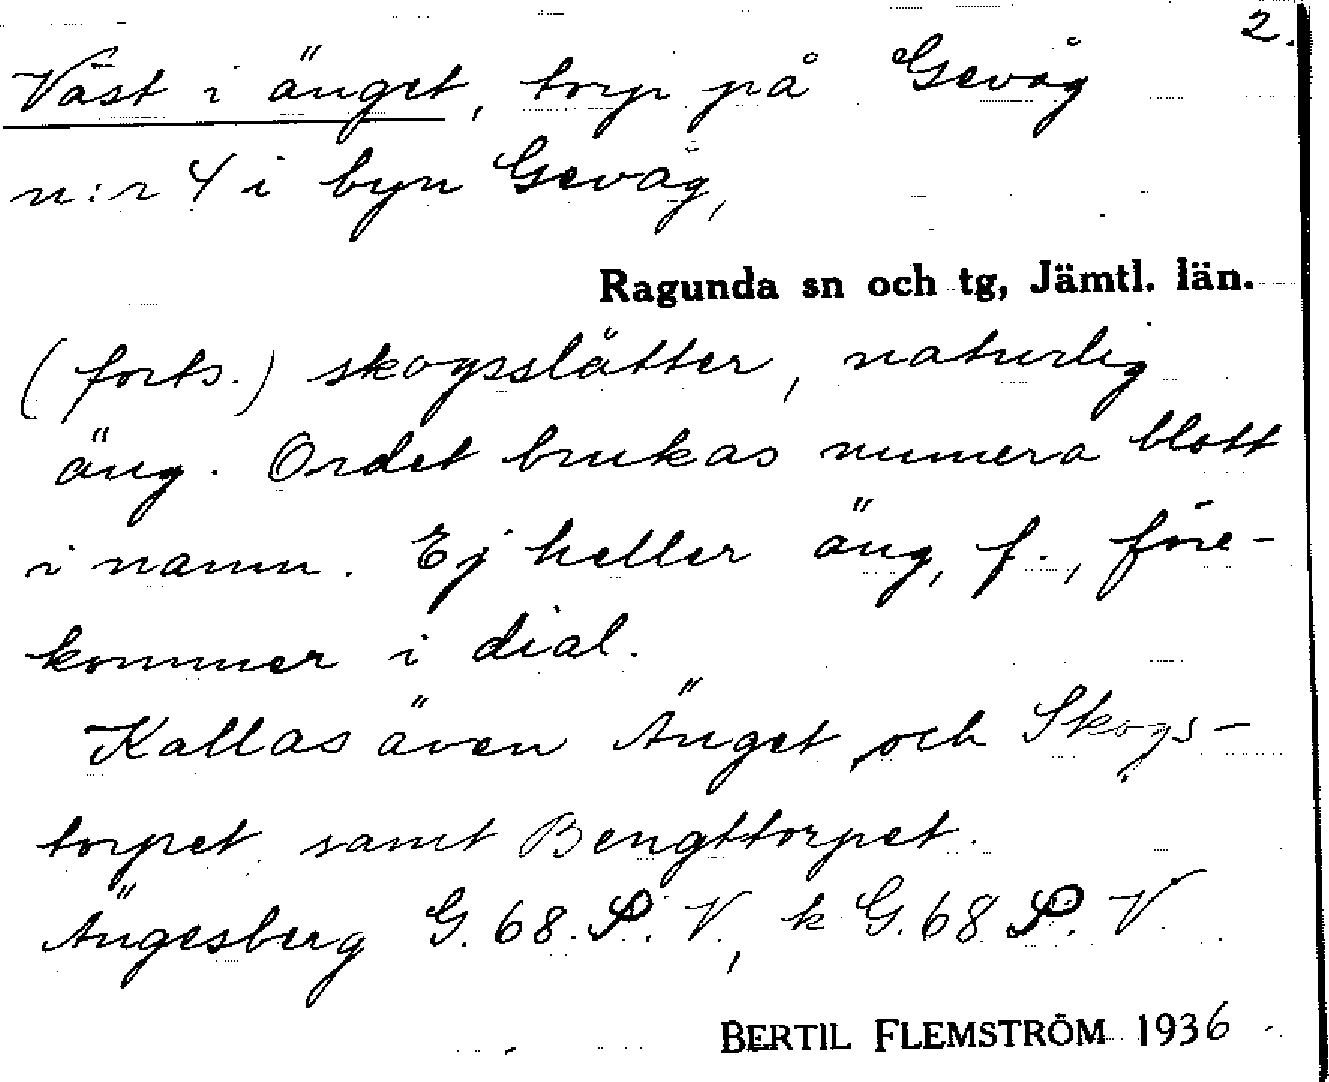 2.
Väst i änget, torp på Gevåg
n:r 4 i byn Gevåg,
Ragunda sn och tg, Jämtl. län.
(forts.) skogsslåtter, naturlig
äng. Ordet brukas numera blott
i namn. Ej heller äng, f., före-
kommer i dial.
Kallas även Änget och Skogs-
torpet samt Bengttorpet.
Ängesberg G. 68. S. V., k G. 68 S. V.
BERTIL FLEMSTRÖM 1936